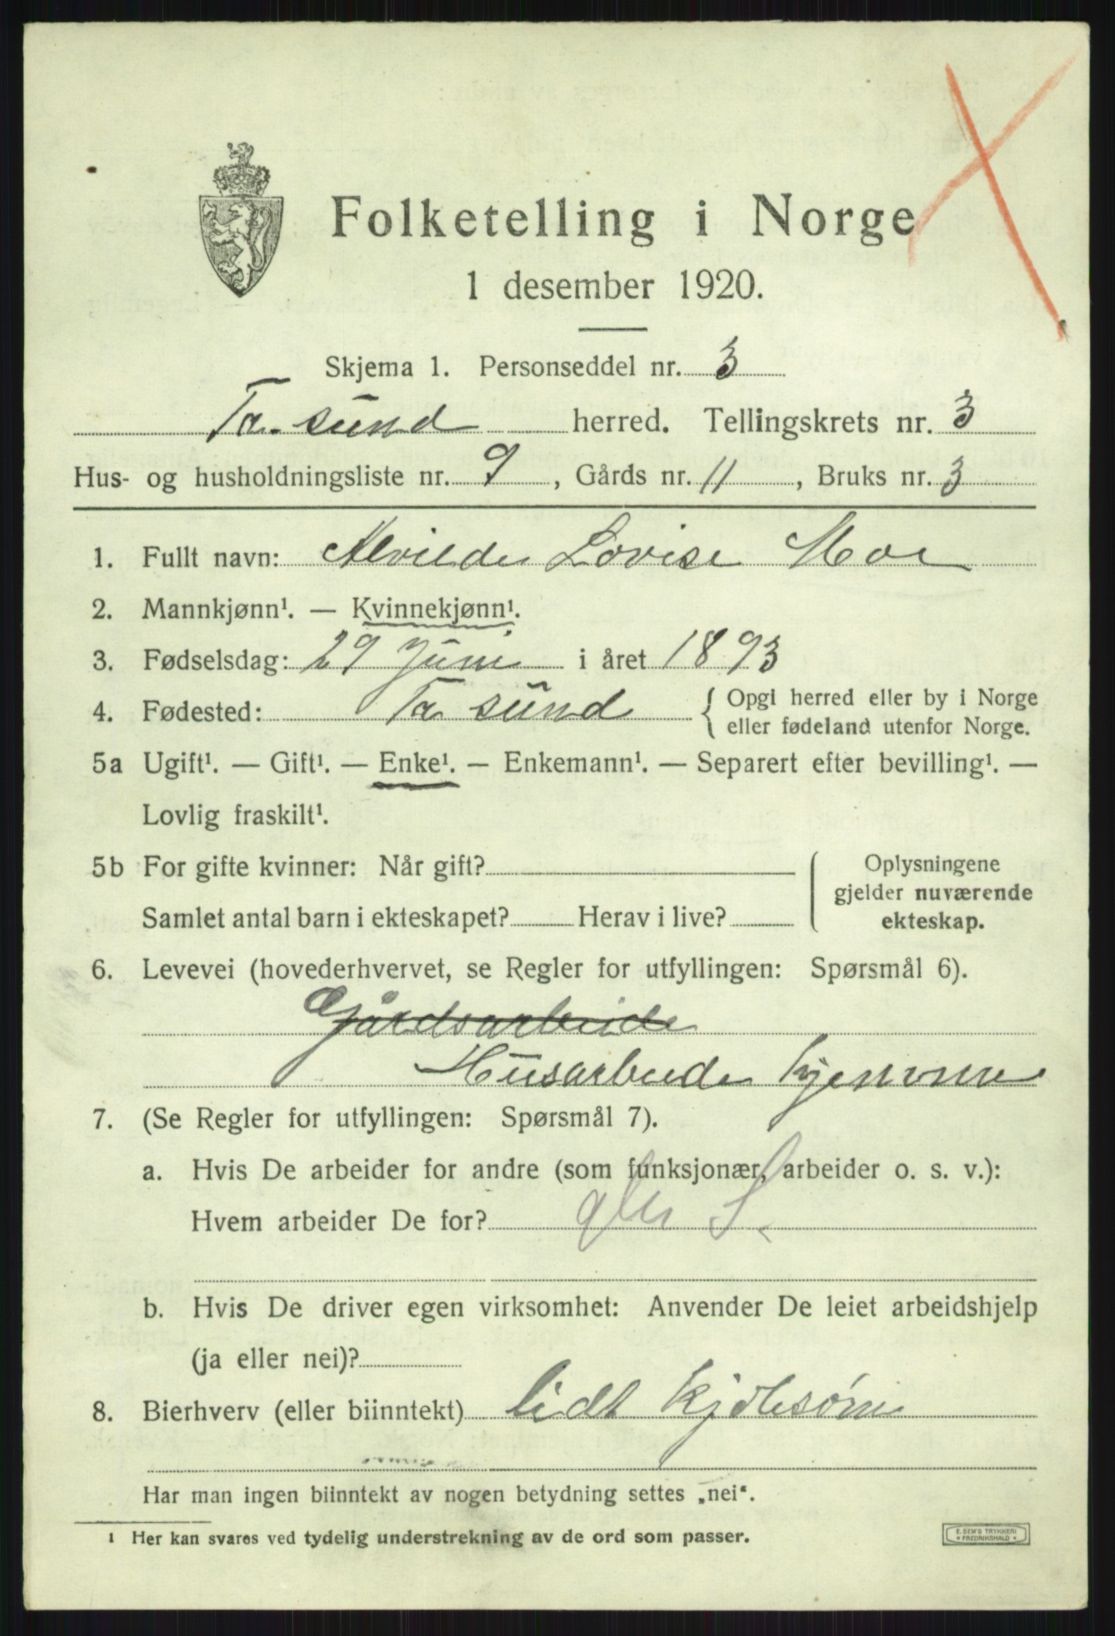 Folketelling i Norge
1 desember 1920.
Skjema 1. Personseddel nr. 3
Ta. sund herred. Tellingskrets nr. 3
Hus- og husholdningsliste nr. 9, Gårds nr. 11, Bruks nr. 3
1. Fullt navn: Alvilde Lovise Moe
2. Mannkjønn¹. — Kvinnekjønn¹.
3. Fødselsdag: 29 Juni i året 1893
4. Fødested: Ta sund { Opgi herred eller by i Norge
eller fødeland utenfor Norge.
5a Ugift¹. — Gift¹. — Enke¹. — Enkemann¹. — Separert efter bevilling¹. —
Lovlig fraskilt¹.
5b For gifte kvinner: Når gift?
Samlet antal barn i ekteskapet? Herav i live?
Oplysningene
gjelder nuværende
ekteskap.
6. Levevei (hovederhvervet, se Regler for utfyllingen: Spørsmål 6).
Gårdsarbeide
Husarbeide hjemme
7. (Se Regler for utfyllingen: Spørsmål 7).
a. Hvis De arbeider for andre (som funksjonær, arbeider o. s. v.):
Hvem arbeider De for? S.
b. Hvis De driver egen virksomhet: Anvender De leiet arbeidshjelp
(ja eller nei)?
8. Bierhverv (eller biinntekt) lidt kjolesøm
Har man ingen biinntekt av nogen betydning settes „nei“.
¹ Her kan svares ved tydelig understrekning av de ord som passer.
E. SEM'S TRYKKERI
FREDRIKSHALD